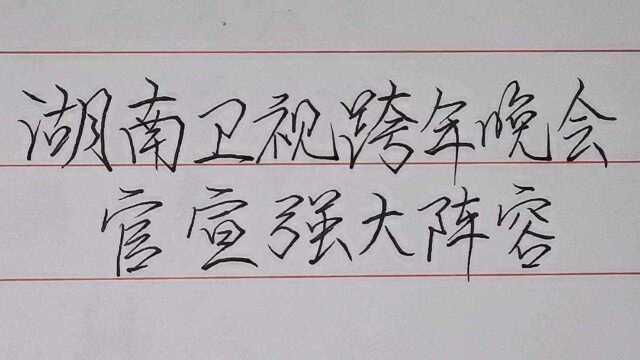 湖南卫视跨年晚会
官宣强大阵容